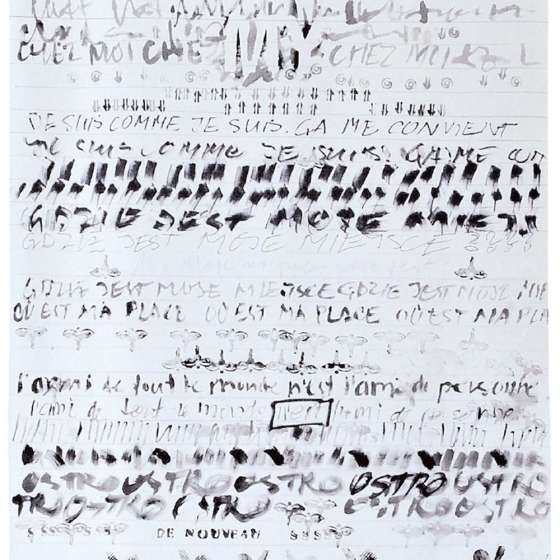 CHEZ MOI CHE CHEZ M
JE SUIS COMME JE SUIS. ÇA ME CONVIENT
JE SUIS COMME JE SUIS. ÇA ME CON
GDZIE JEST MOJE MIEJ
GDZIE JEST MOJE MIEJSCE
GDZIE JEST MOJE MIEJSCE GDZIE JEST MOJE MIE
OÙ EST MA PLACE OÙ EST MA PLACE OÙ EST MA PLA
l'ami de tout le monde n'est l'ami de personne
l'ami de tout le monde n'est l'ami de personne
OSTRO OSTRO OSTRO OSTRO OSTRO
TRO OSTRO OSTRO OSTRO OSTRO
DE NOUVEAU